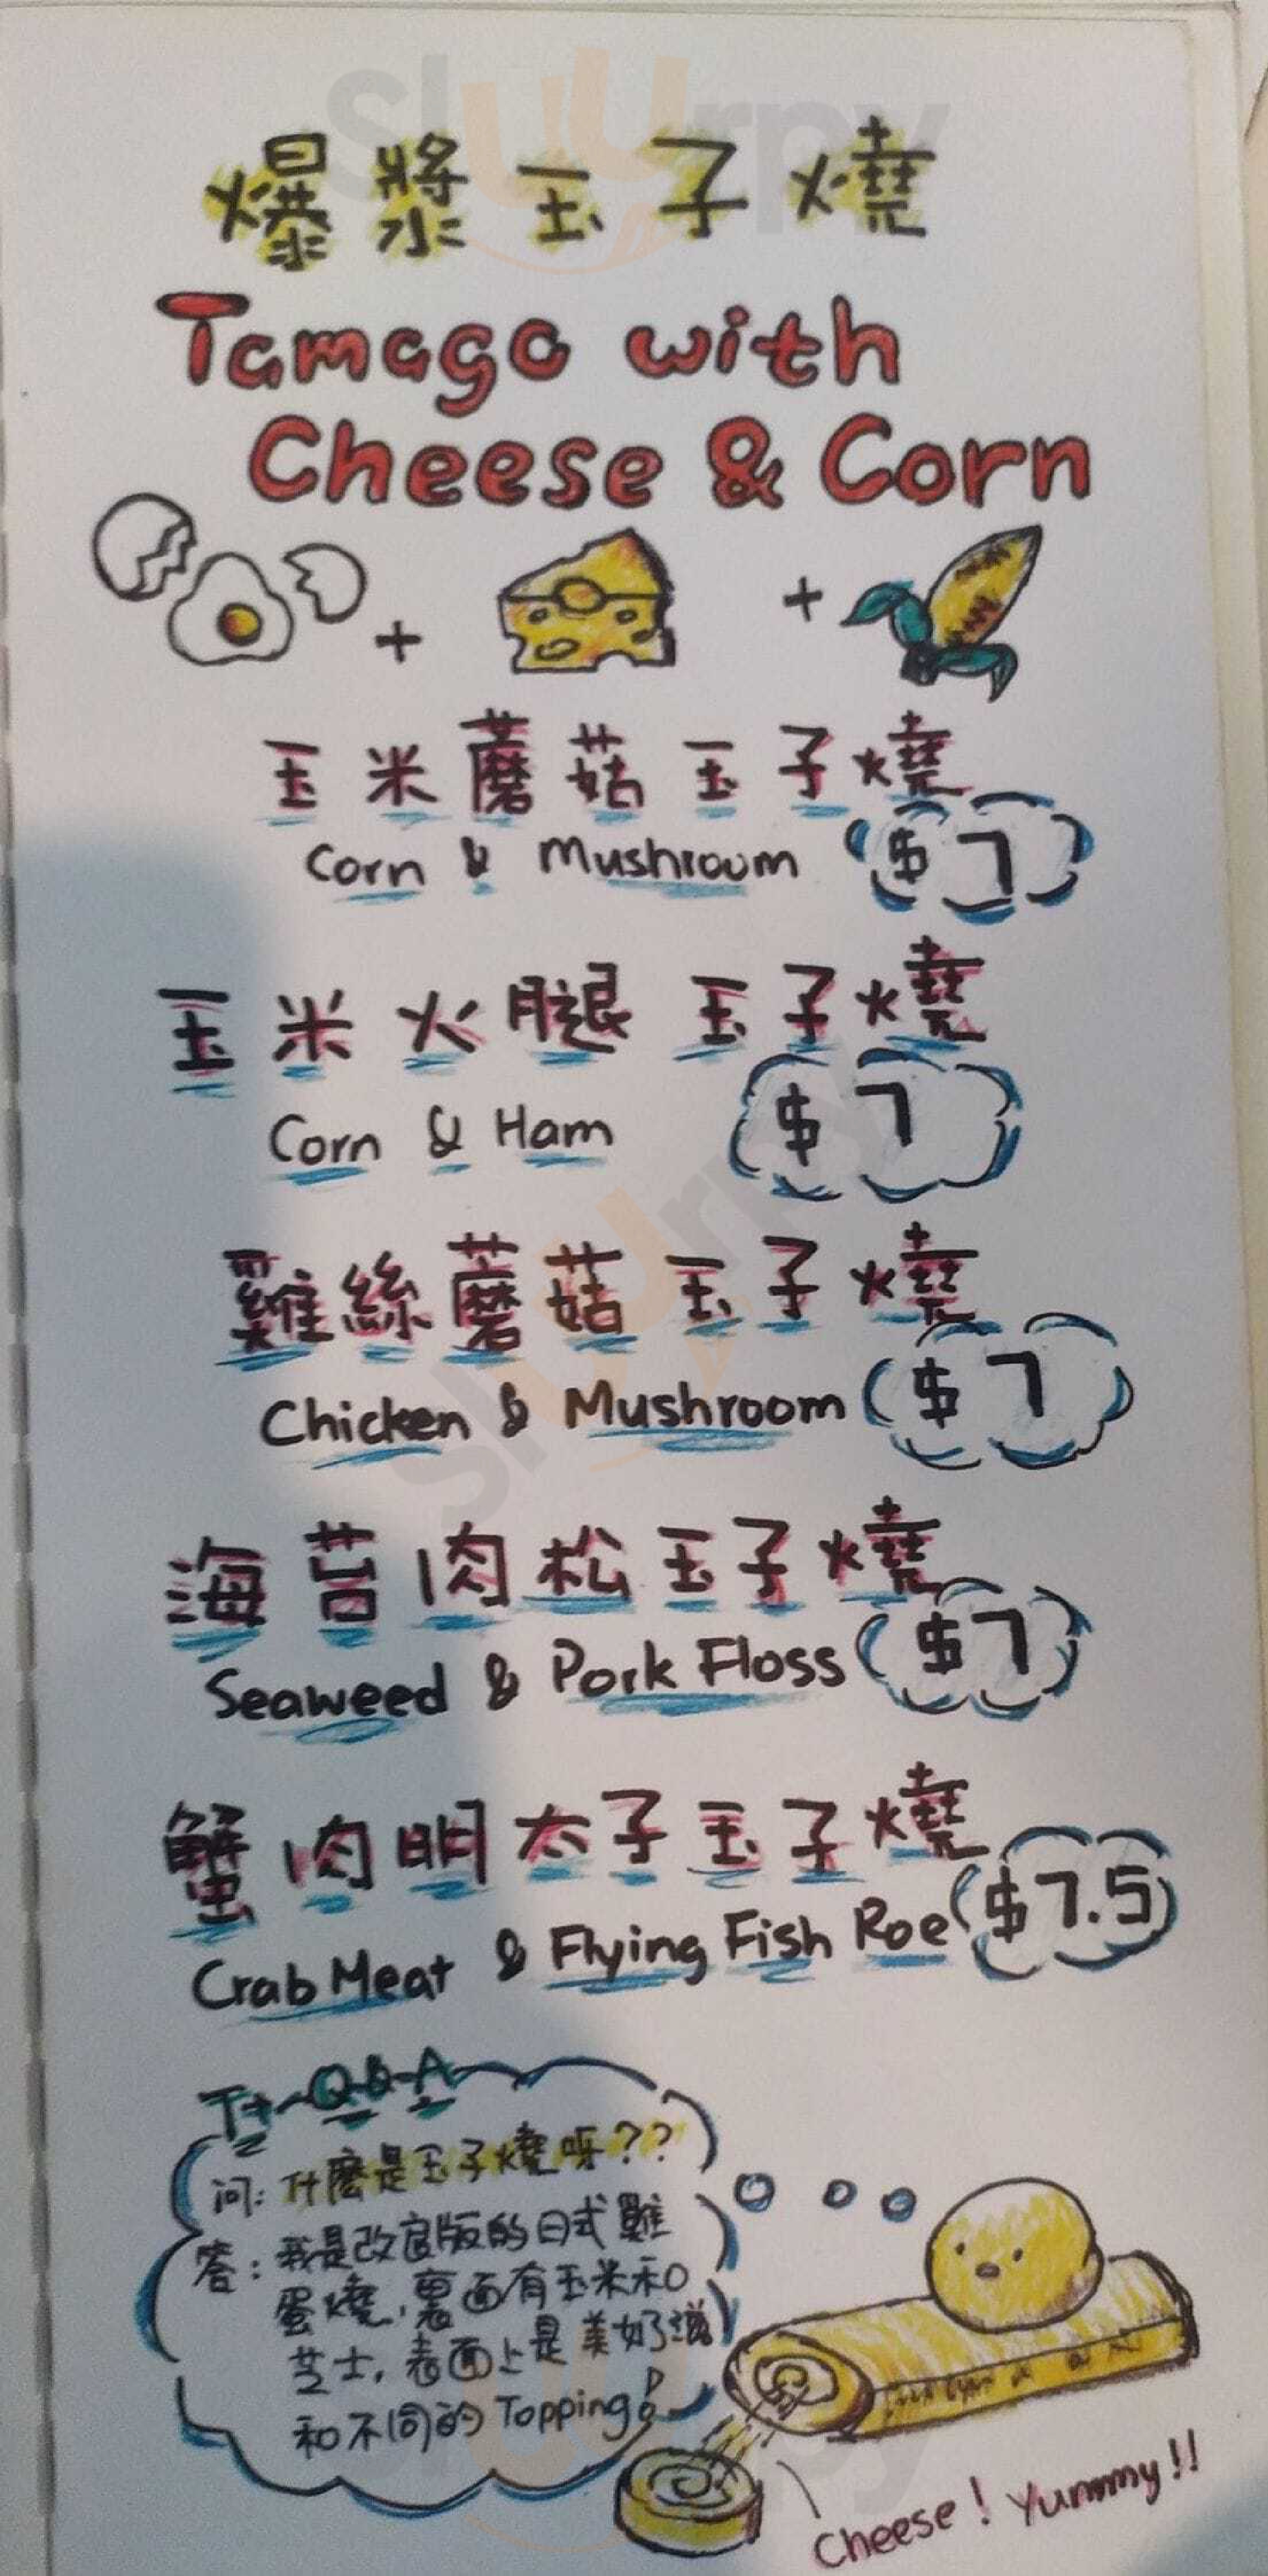 爆漿玉子燒
Tamago with
Cheese & Corn
玉米蘑菇玉子燒
Corn & Mushroom $7
玉米火腿玉子燒
Corn & Ham $7
雞絲蘑菇玉子燒
Chicken & Mushroom $7
海苔肉松玉子燒
Seaweed & Pork Floss $7
蟹肉明太子玉子燒
Crab Meat & Flying Fish Roe $7.5
Q&A
问：什麼是玉子燒呀??
答：我是改良版的日式雞
蛋燒,裏面有玉米和
芝士,表面上是美奶滋
和不同的Topping!
Cheese! Yummy!!
slurrpy
slurrpy